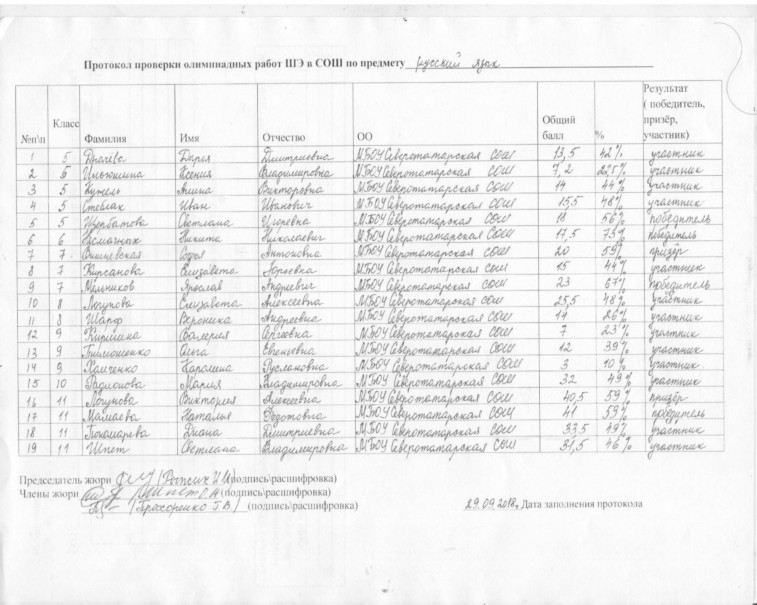 Протокол проверки олимпиадных работ ШЭ в СОШ по предмету русский язык
№п\п Класс Фамилия Имя Отчество ОО Общий балл % Результат ( победитель, призёр, участник)
1 5 Дмитриевна МБОУ Северотатарская СОШ 13,5 42% участник
2 6 Ксения Владимировна МБОУ Северотатарская СОШ 7,2 22,5% участник
3 5 Кужель Янина Викторовна МБОУ Северотатарская СОШ 14 44% участник
4 5 Иван Иванович МБОУ Северотатарская СОШ 15,5 48% участник
5 5 Светлана Игоревна МБОУ Северотатарская СОШ 18 56% победитель
6 6 Никита Николаевич МБОУ Северотатарская СОШ 17,5 73% победитель
7 7 Софья Антоновна МБОУ Северотатарская СОШ 20 59% призёр
8 7 Кирсанова Елизавета Юрьевна МБОУ Северотатарская СОШ 15 44% участник
9 7 Мельников Ярослав Андреевич МБОУ Северотатарская СОШ 23 67% победитель
10 8 Логунова Елизавета Алексеевна МБОУ Северотатарская СОШ 25,5 48% участник
11 8 Шарф Вероника Андреевна МБОУ Северотатарская СОШ 14 26% участник
12 9 Валерия Сергеевна МБОУ Северотатарская СОШ 7 23% участник
13 9 Тимошенко Ольга Евгеньевна МБОУ Северотатарская СОШ 12 39% участник
14 9 Каролина Руслановна МБОУ Северотатарская СОШ 3 10% участник
15 10 Мария Владимировна МБОУ Северотатарская СОШ 32 49% участник
16 11 Логунова Виктория Алексеевна МБОУ Северотатарская СОШ 40,5 59% призёр
17 11 Мамаева Наталья Федотовна МБОУ Северотатарская СОШ 41 59% победитель
18 11 Пономарева Диана Дмитриевна МБОУ Северотатарская СОШ 33,5 49% участник
19 11 Шпет Светлана Владимировна МБОУ Северотатарская СОШ 31,5 46% участник
Председатель жюри (подпись\расшифровка)
Члены жюри (подпись\расшифровка)
(подпись\расшифровка) 29.09.2018г. Дата заполнения протокола